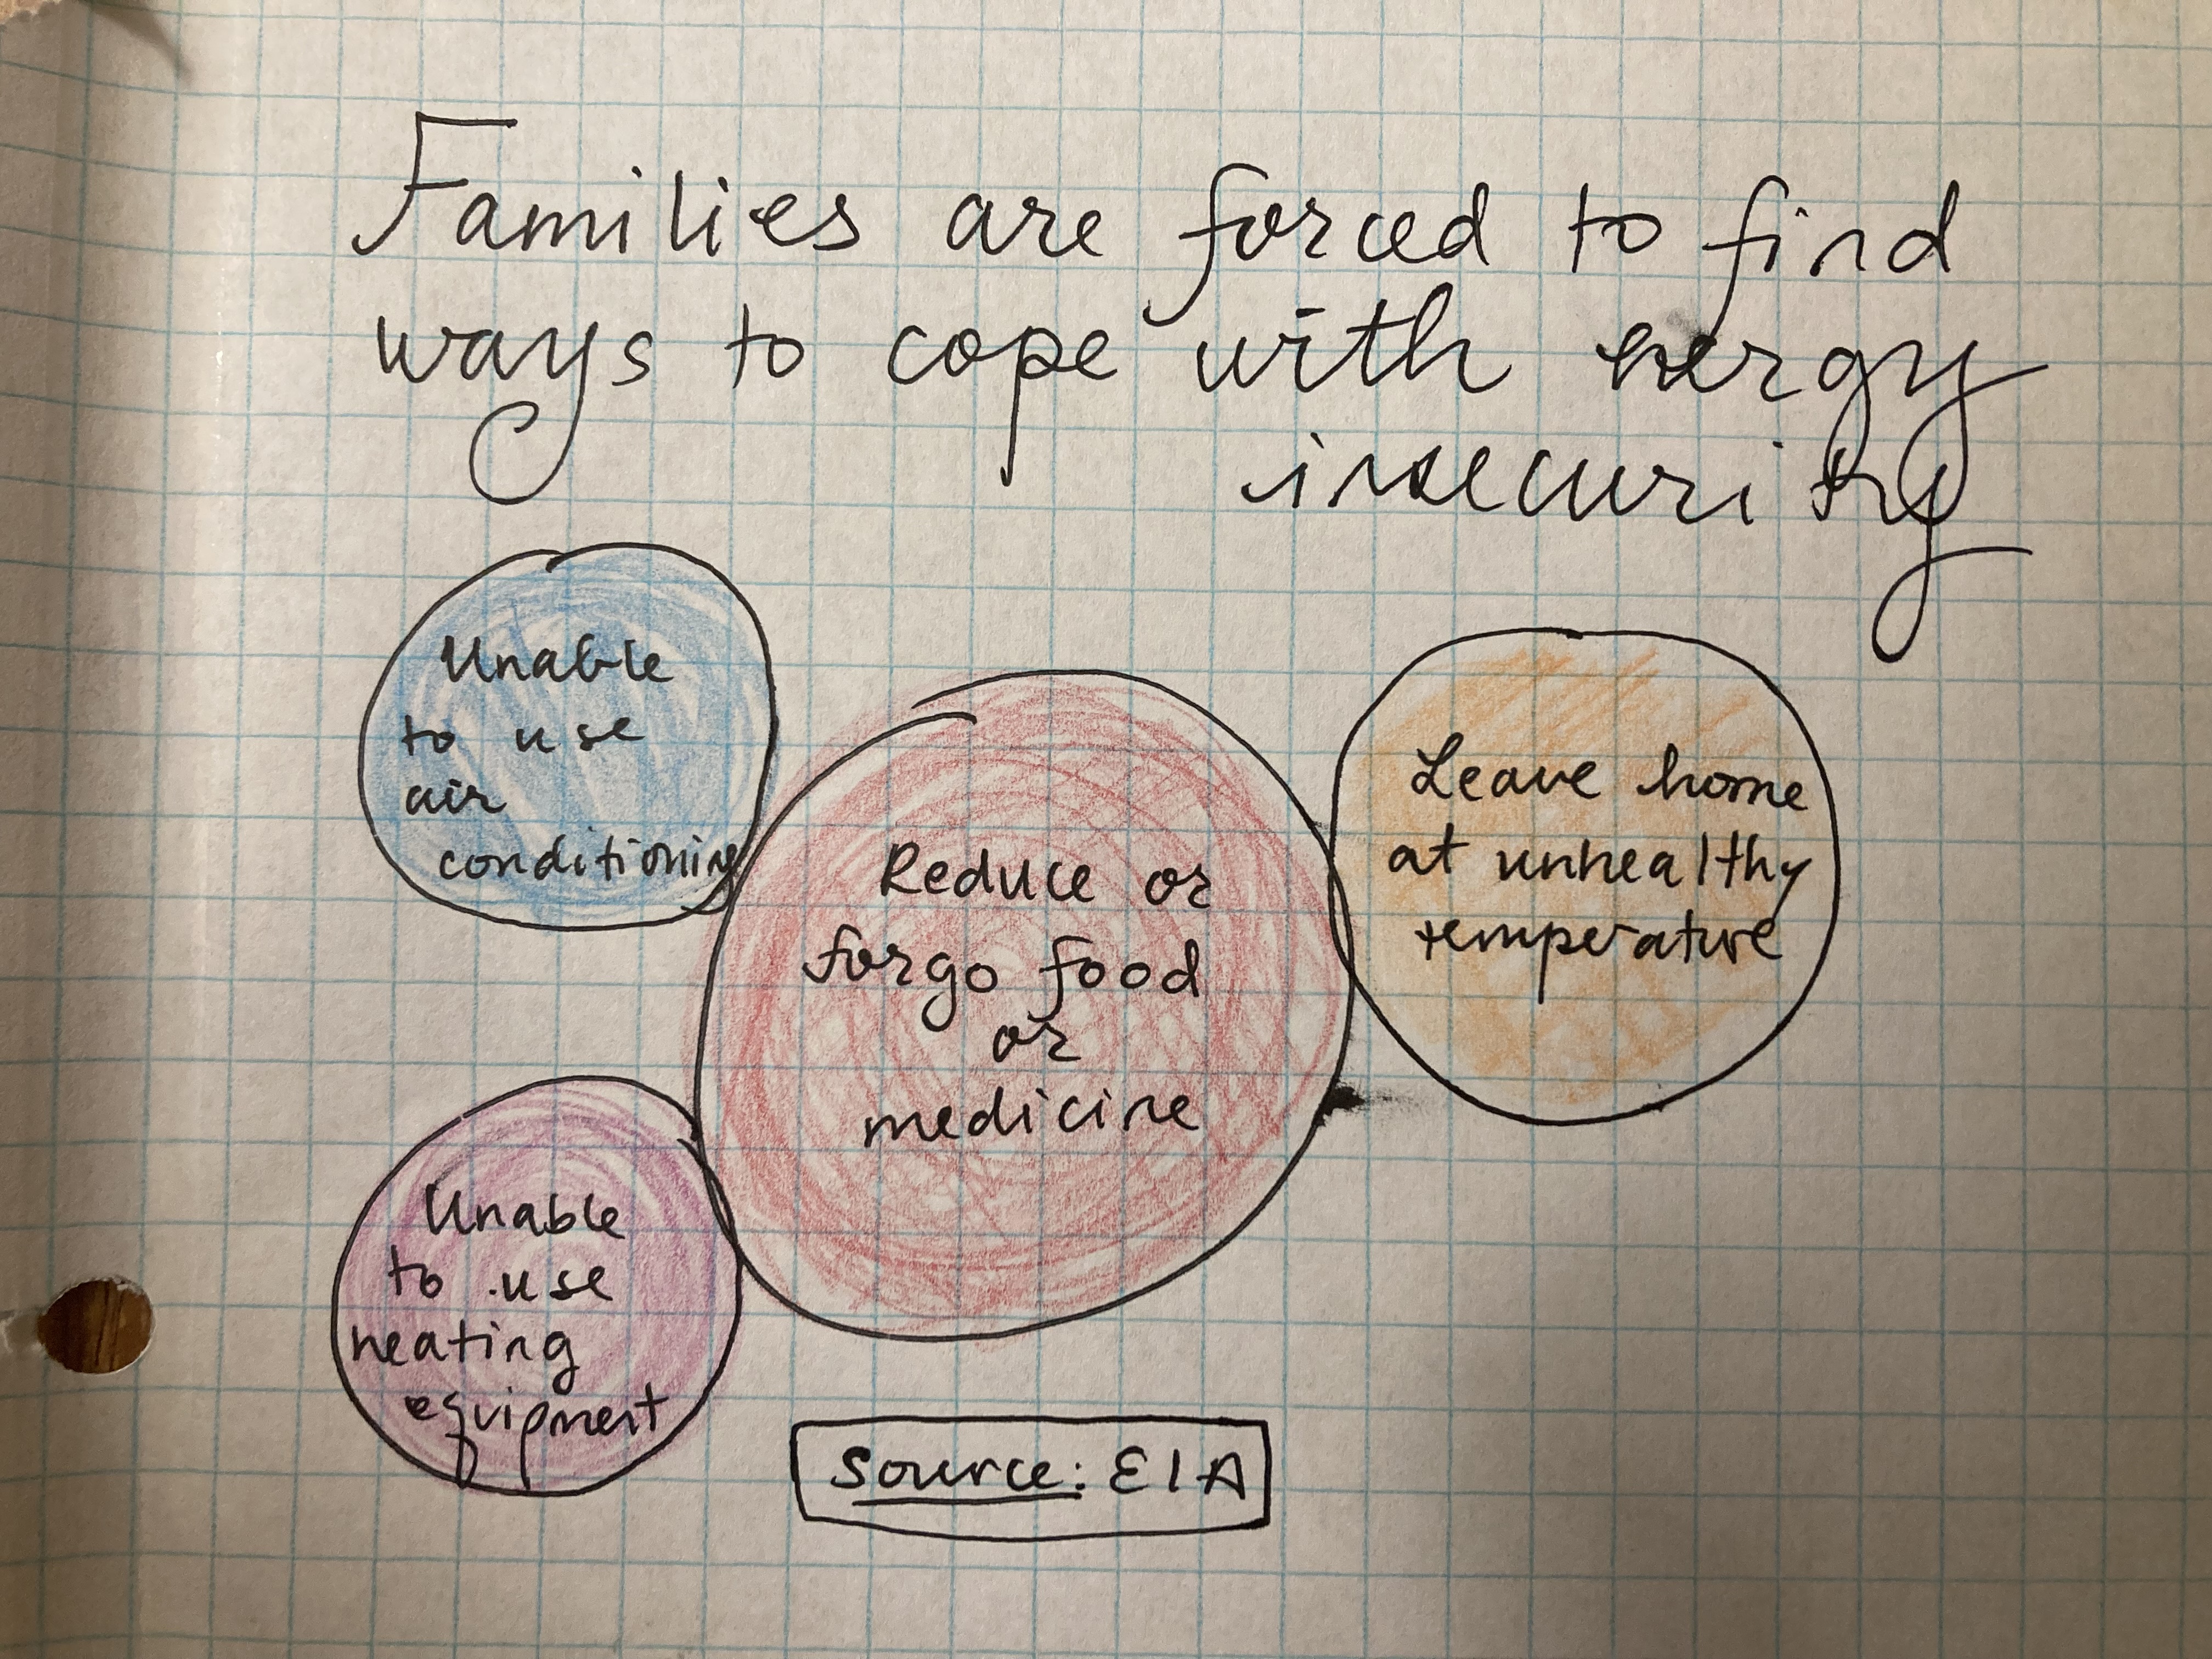 Families are forced to find
ways to cope with energy
insecurity
Unable
to use
air
conditioning
Reduce or
forgo food
or
medicine
Leave home
at unhealthy
temperature
Unable
to use
heating
equipment
Source: EIA